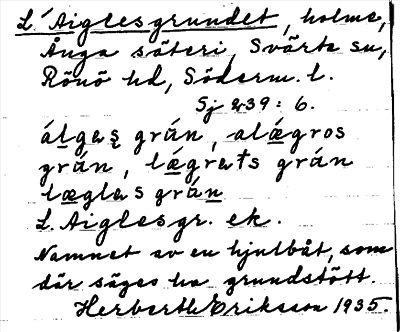 L'Aiglesgrundet, holme,
Ånga säteri, Svärta sn,
Rönö hd, Söderm. l.
Sj 239: 6.
álgas grán, alǽgros
grán, lǽgrats grán
læglas grán
L. Aiglesgr. ek.
Namnet av en hjulbåt, som
där säges ha grundstött.
Herberth Eriksson 1935.